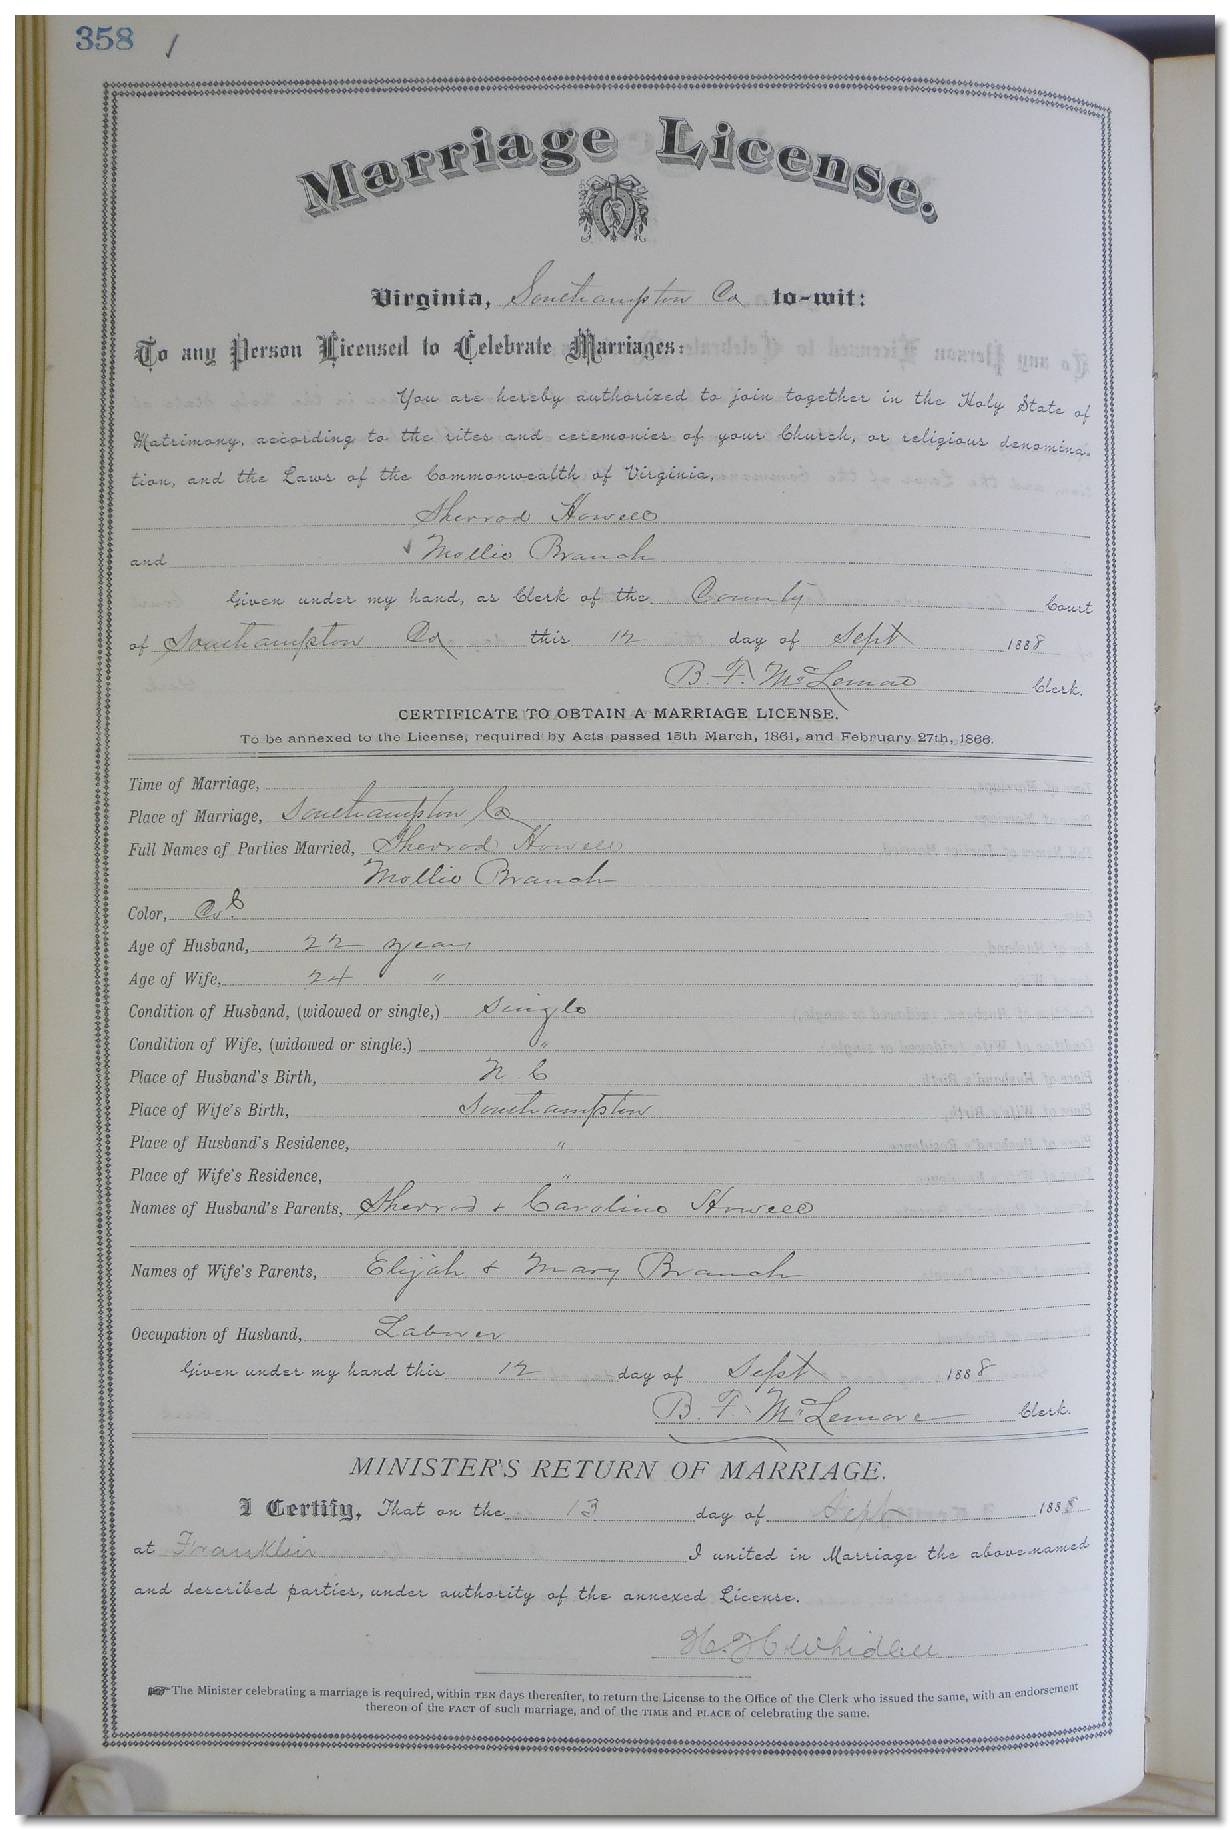 358 /
Marriage License.
Virginia, Southampton Co to-wit:
To any Person Licensed to Celebrate Marriages:
You are hereby authorized to join together in the Holy State of
Matrimony, according to the rites and ceremonies of your Church, or religious denomina-
tion, and the Laws of the Commonwealth of Virginia,
Sherrod Howell
and Mollie Branch
Given under my hand, as Clerk of the County Court
of Southampton Co this 12 day of Sept 1888
B. F. McLemore Clerk.
CERTIFICATE TO OBTAIN A MARRIAGE LICENSE.
To be annexed to the License, required by Acts passed 15th March, 1861, and February 27th, 1866.
Time of Marriage,
Place of Marriage, Southampton Co
Full Names of Parties Married, Sherrod Howell
Mollie Branch
Color, Cold
Age of Husband, 22 years
Age of Wife, 24 "
Condition of Husband, (widowed or single,) Single
Condition of Wife, (widowed or single,) "
Place of Husband's Birth, N C
Place of Wife's Birth, Southampton
Place of Husband's Residence, "
Place of Wife's Residence, "
Names of Husband's Parents, Sherrod & Caroline Howell
Names of Wife's Parents, Elijah & Mary Branch
Occupation of Husband, Laborer
Given under my hand this 12 day of Sept 1888
B. F. McLemore Clerk.
MINISTER'S RETURN OF MARRIAGE.
I Certify, That on the 13 day of Sept 1888
at Franklin I united in Marriage the above-named
and described parties, under authority of the annexed License.
H. H.
The Minister celebrating a marriage is required, within TEN days thereafter, to return the License to the Office of the Clerk who issued the same, with an endorsement
thereon of the FACT of such marriage, and of the TIME and PLACE of celebrating the same.